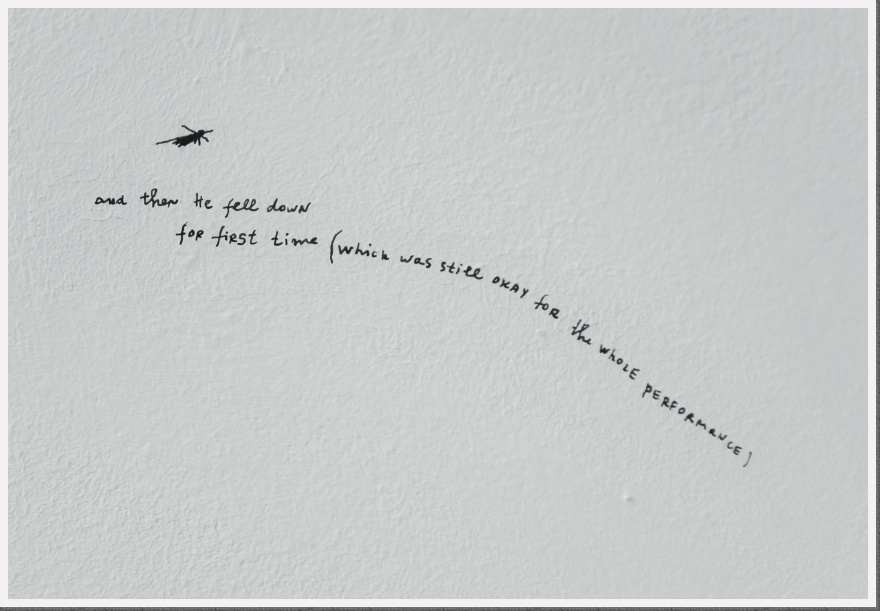 and then He fell down
for first time (which was still okay for the whole performance)